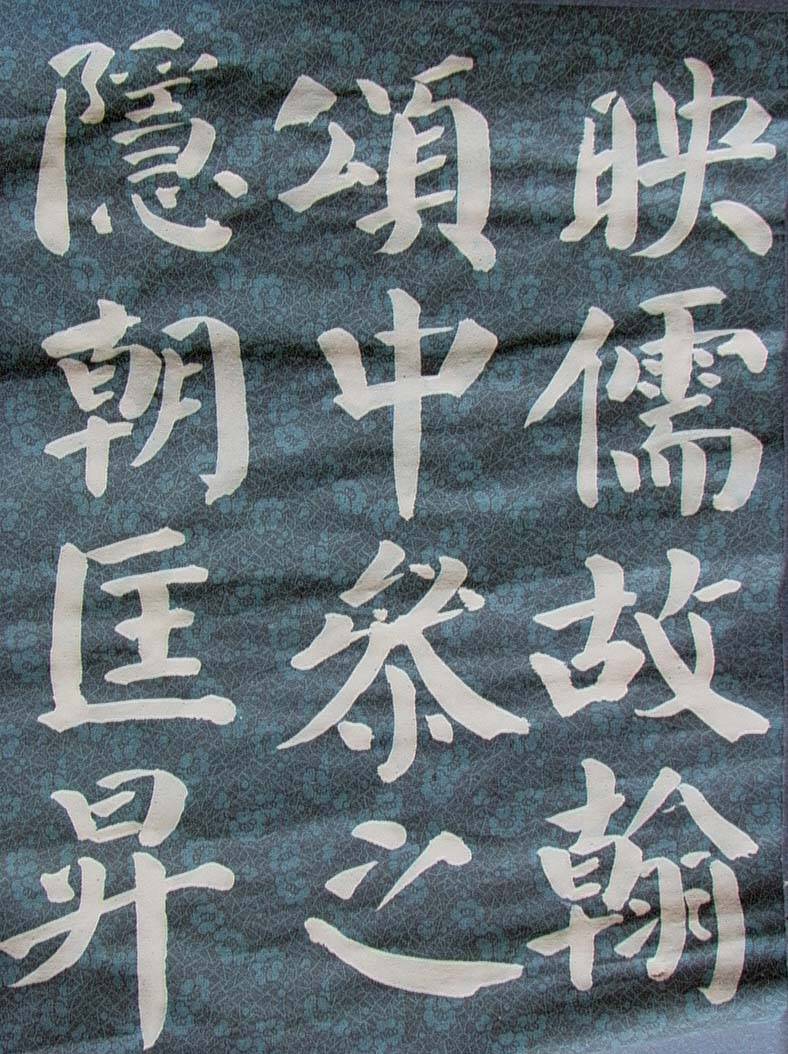 映儒故翰
頌中參之
隱朝匡昇